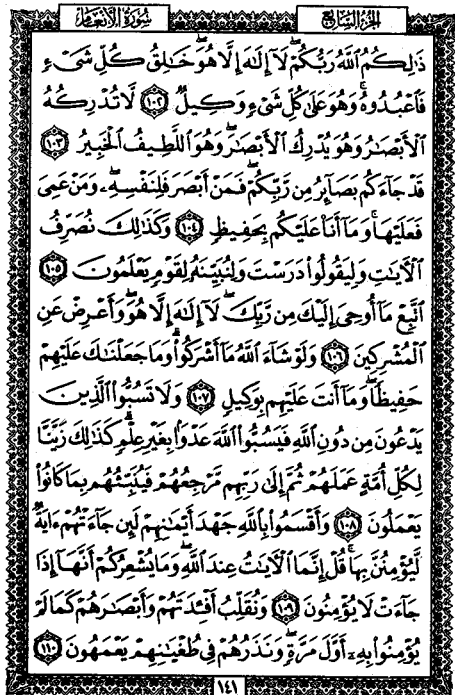 سورة الأنعام
الجزء السابع
ذَٰلِكُمُ ٱللَّهُ رَبُّكُمْ ۖ لَآ إِلَٰهَ إِلَّا هُوَ ۖ خَٰلِقُ كُلِّ شَىْءٍ
فَٱعْبُدُوهُ ۚ وَهُوَ عَلَىٰ كُلِّ شَىْءٍ وَكِيلٌ ١٠٢ لَّا تُدْرِكُهُ
ٱلْأَبْصَٰرُ وَهُوَ يُدْرِكُ ٱلْأَبْصَٰرَ ۖ وَهُوَ ٱللَّطِيفُ ٱلْخَبِيرُ ١٠٣
قَدْ جَآءَكُم بَصَآئِرُ مِن رَّبِّكُمْ ۖ فَمَنْ أَبْصَرَ فَلِنَفْسِهِۦ ۖ وَمَنْ عَمِىَ
فَعَلَيْهَا ۚ وَمَآ أَنَا۠ عَلَيْكُم بِحَفِيظٍ ١٠٤ وَكَذَٰلِكَ نُصَرِّفُ
ٱلْءَايَٰتِ وَلِيَقُولُوا۟ دَرَسْتَ وَلِنُبَيِّنَهُۥ لِقَوْمٍ يَعْلَمُونَ ١٠٥
ٱتَّبِعْ مَآ أُوحِىَ إِلَيْكَ مِن رَّبِّكَ ۖ لَآ إِلَٰهَ إِلَّا هُوَ ۖ وَأَعْرِضْ عَنِ
ٱلْمُشْرِكِينَ ١٠٦ وَلَوْ شَآءَ ٱللَّهُ مَآ أَشْرَكُوا۟ ۗ وَمَا جَعَلْنَٰكَ عَلَيْهِمْ
حَفِيظًا ۖ وَمَآ أَنتَ عَلَيْهِم بِوَكِيلٍ ١٠٧ وَلَا تَسُبُّوا۟ ٱلَّذِينَ
يَدْعُونَ مِن دُونِ ٱللَّهِ فَيَسُبُّوا۟ ٱللَّهَ عَدْوًۢا بِغَيْرِ عِلْمٍ ۗ كَذَٰلِكَ زَيَّنَّا
لِكُلِّ أُمَّةٍ عَمَلَهُمْ ثُمَّ إِلَىٰ رَبِّهِم مَّرْجِعُهُمْ فَيُنَبِّئُهُم بِمَا كَانُوا۟
يَعْمَلُونَ ١٠٨ وَأَقْسَمُوا۟ بِٱللَّهِ جَهْدَ أَيْمَٰنِهِمْ لَئِن جَآءَتْهُمْ ءَايَةٌ
لَّيُؤْمِنُنَّ بِهَا ۚ قُلْ إِنَّمَا ٱلْءَايَٰتُ عِندَ ٱللَّهِ ۖ وَمَا يُشْعِرُكُمْ أَنَّهَآ إِذَا
جَآءَتْ لَا يُؤْمِنُونَ ١٠٩ وَنُقَلِّبُ أَفْـِٔدَتَهُمْ وَأَبْصَٰرَهُمْ كَمَا لَمْ
يُؤْمِنُوا۟ بِهِۦٓ أَوَّلَ مَرَّةٍ وَنَذَرُهُمْ فِى طُغْيَٰنِهِمْ يَعْمَهُونَ ١١٠
١٤١